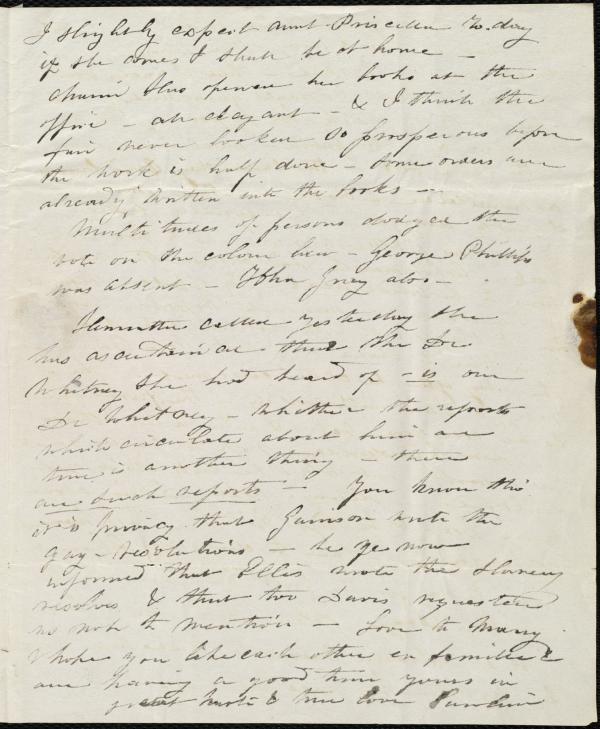 I slightly expect aunt Priscilla to-day
if she comes I shall be at home —
has opened her books at the
office — all elegant — & I think the
fair never looked so prosperous before
the work is half done — Some orders are
already written into the books —
Multitudes of persons dodged the
vote on the colour law — George Phillips
was absent — John Gray also —
Henrietta called yesterday she
has ascertained that the Dr.
Whitney she had heard of — is our
Dr Whitney — Whether the reports
which circulate about him are
true is another thing — there
are such reports — You know this
is privacy that Garrison wrote the
Gag-resolutions — be ye now
informed that Ellis wrote the Slavery
resolves & that too Davis requested
us not to mention — Love to Mary
I hope you like each other en famille &
are having a good time yours in
great haste & true love